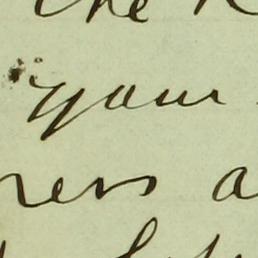 the
"your
ress a